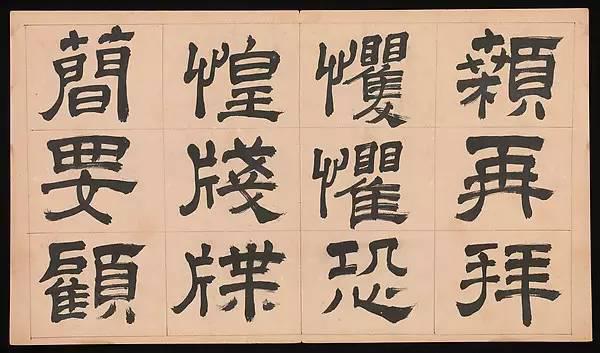 顙再拜
戄懼恐
惶牋牒
簡要顧